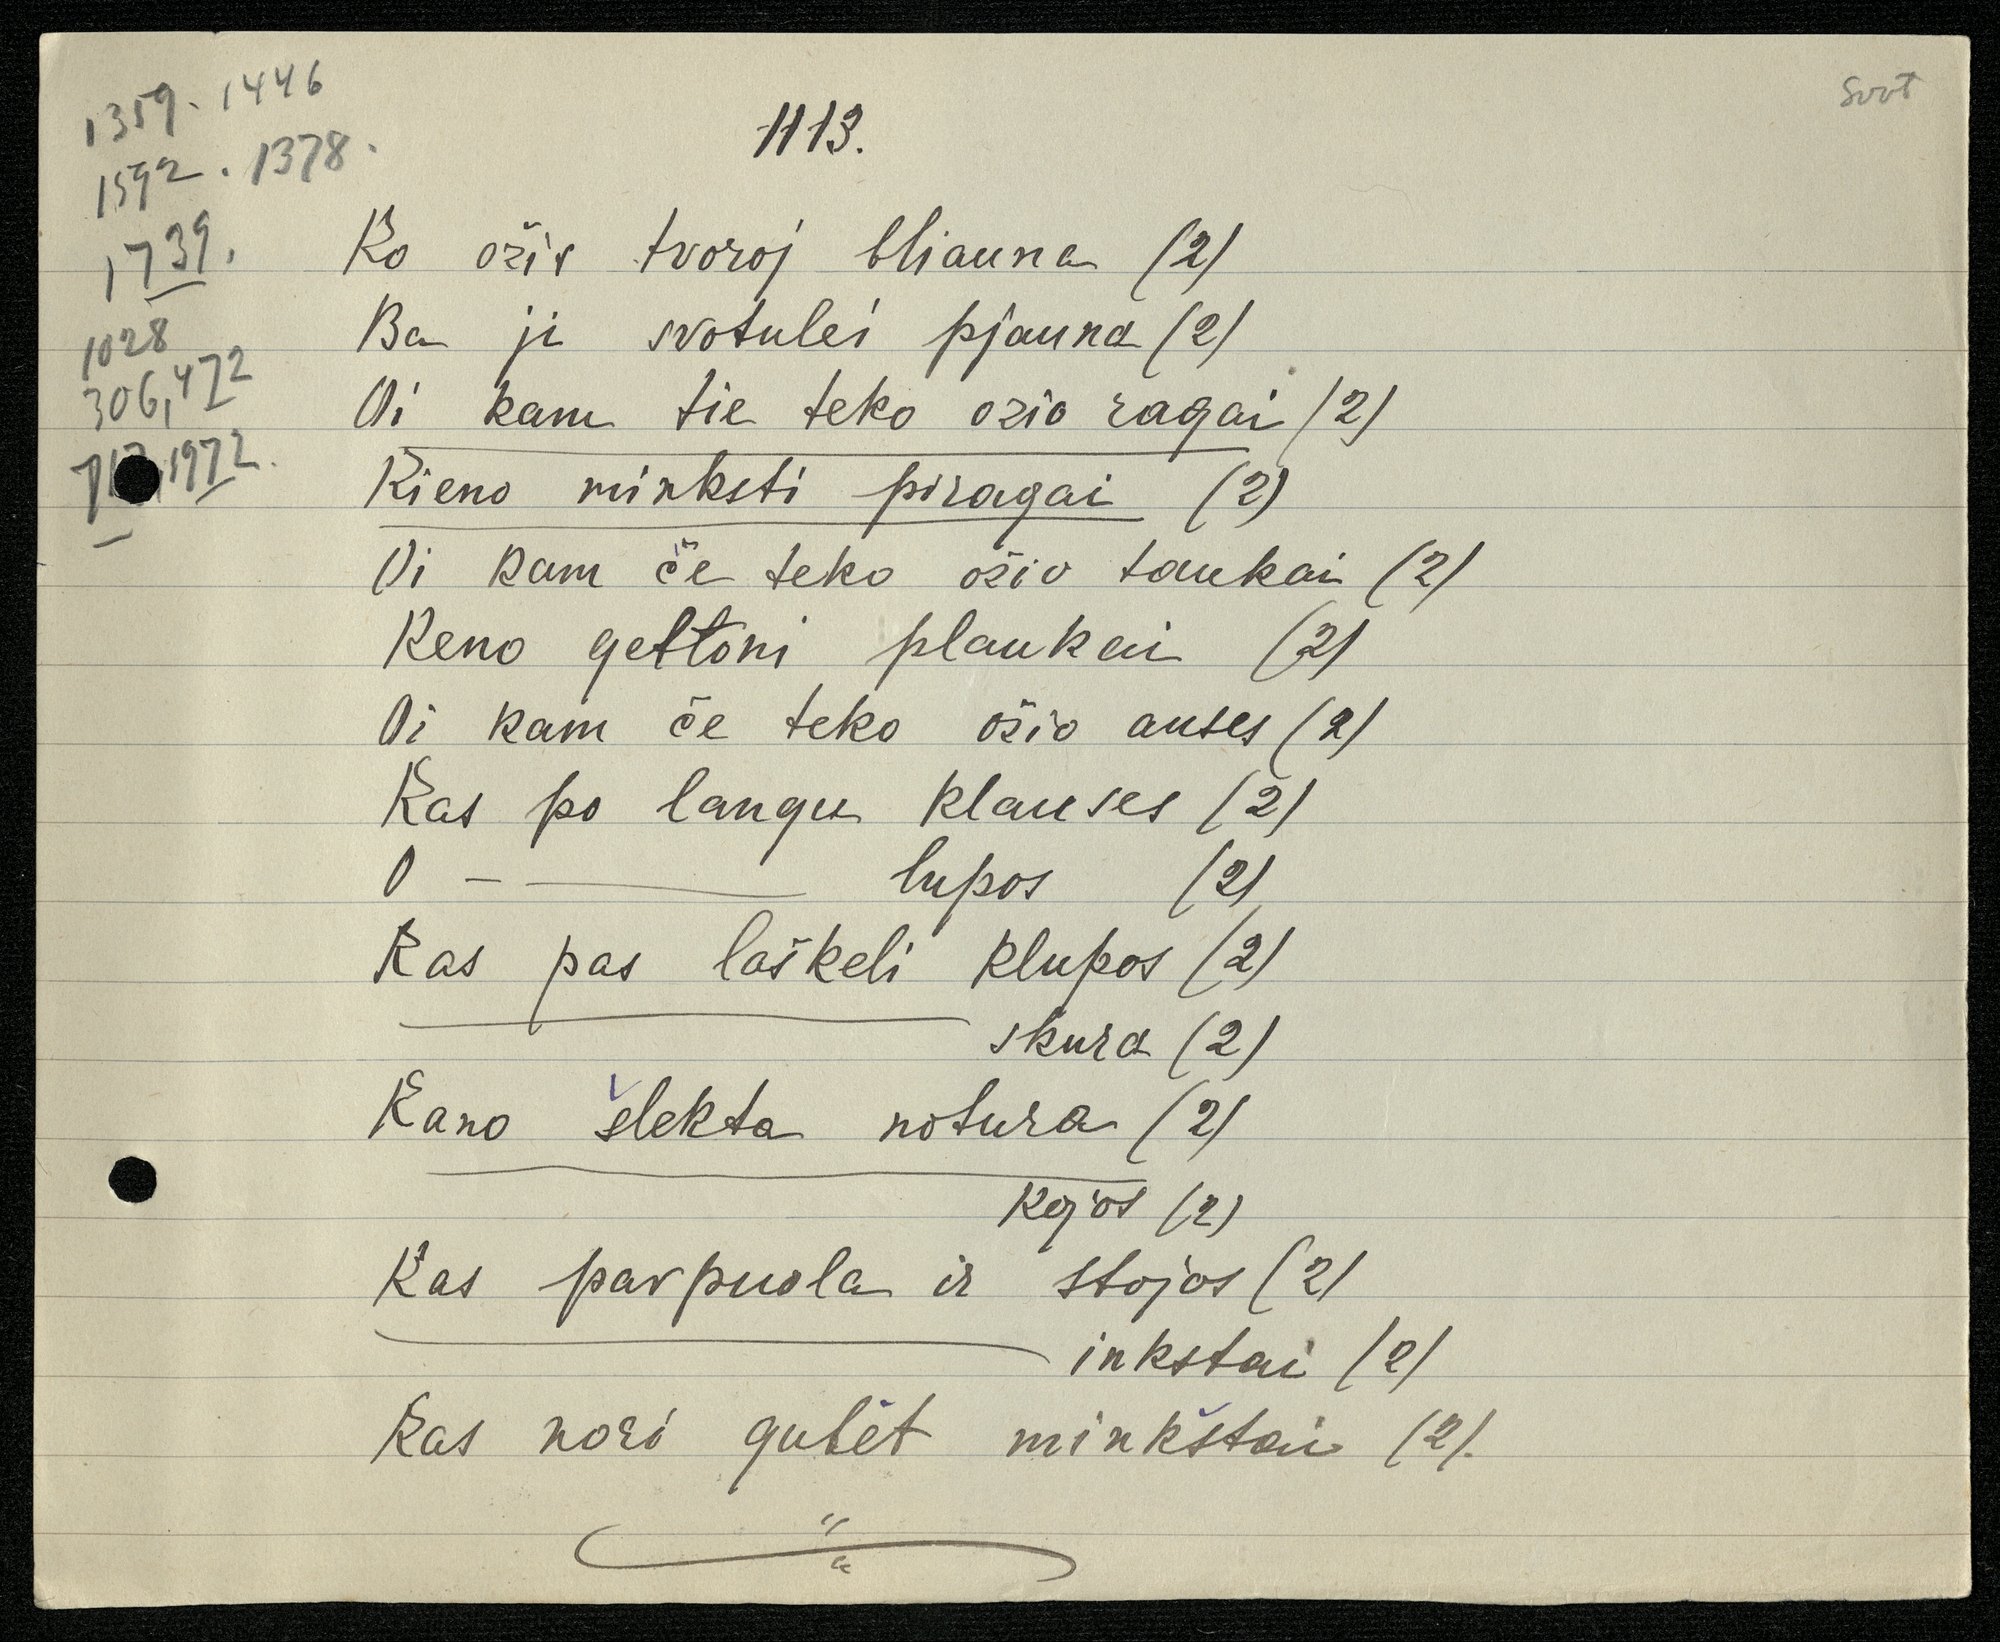 1359. 1446
1592. 1378.
1739.
1028
306, 472
1972.
svot
1113.
Ko ožis tvoroj bliauna (2)
Ba ji svotulei pjauna (2)
Oi kam tie teko ozio ragai (2)
Kieno minksti piragai (2)
Oi kam če teko ožio taukai (2)
Keno geltoni plaukai (2)
Oi kam če teko ožio auses (2)
Kas po langu klauses (2)
O — ——— lupos (2)
Kas pas laškeli klupos (2)
——— skura (2)
Kano šlekta notura (2)
——— kojos (2)
Kas parpuola ir stojos (2)
——— inkstai (2)
Kas nori gulėt minkštai (2).